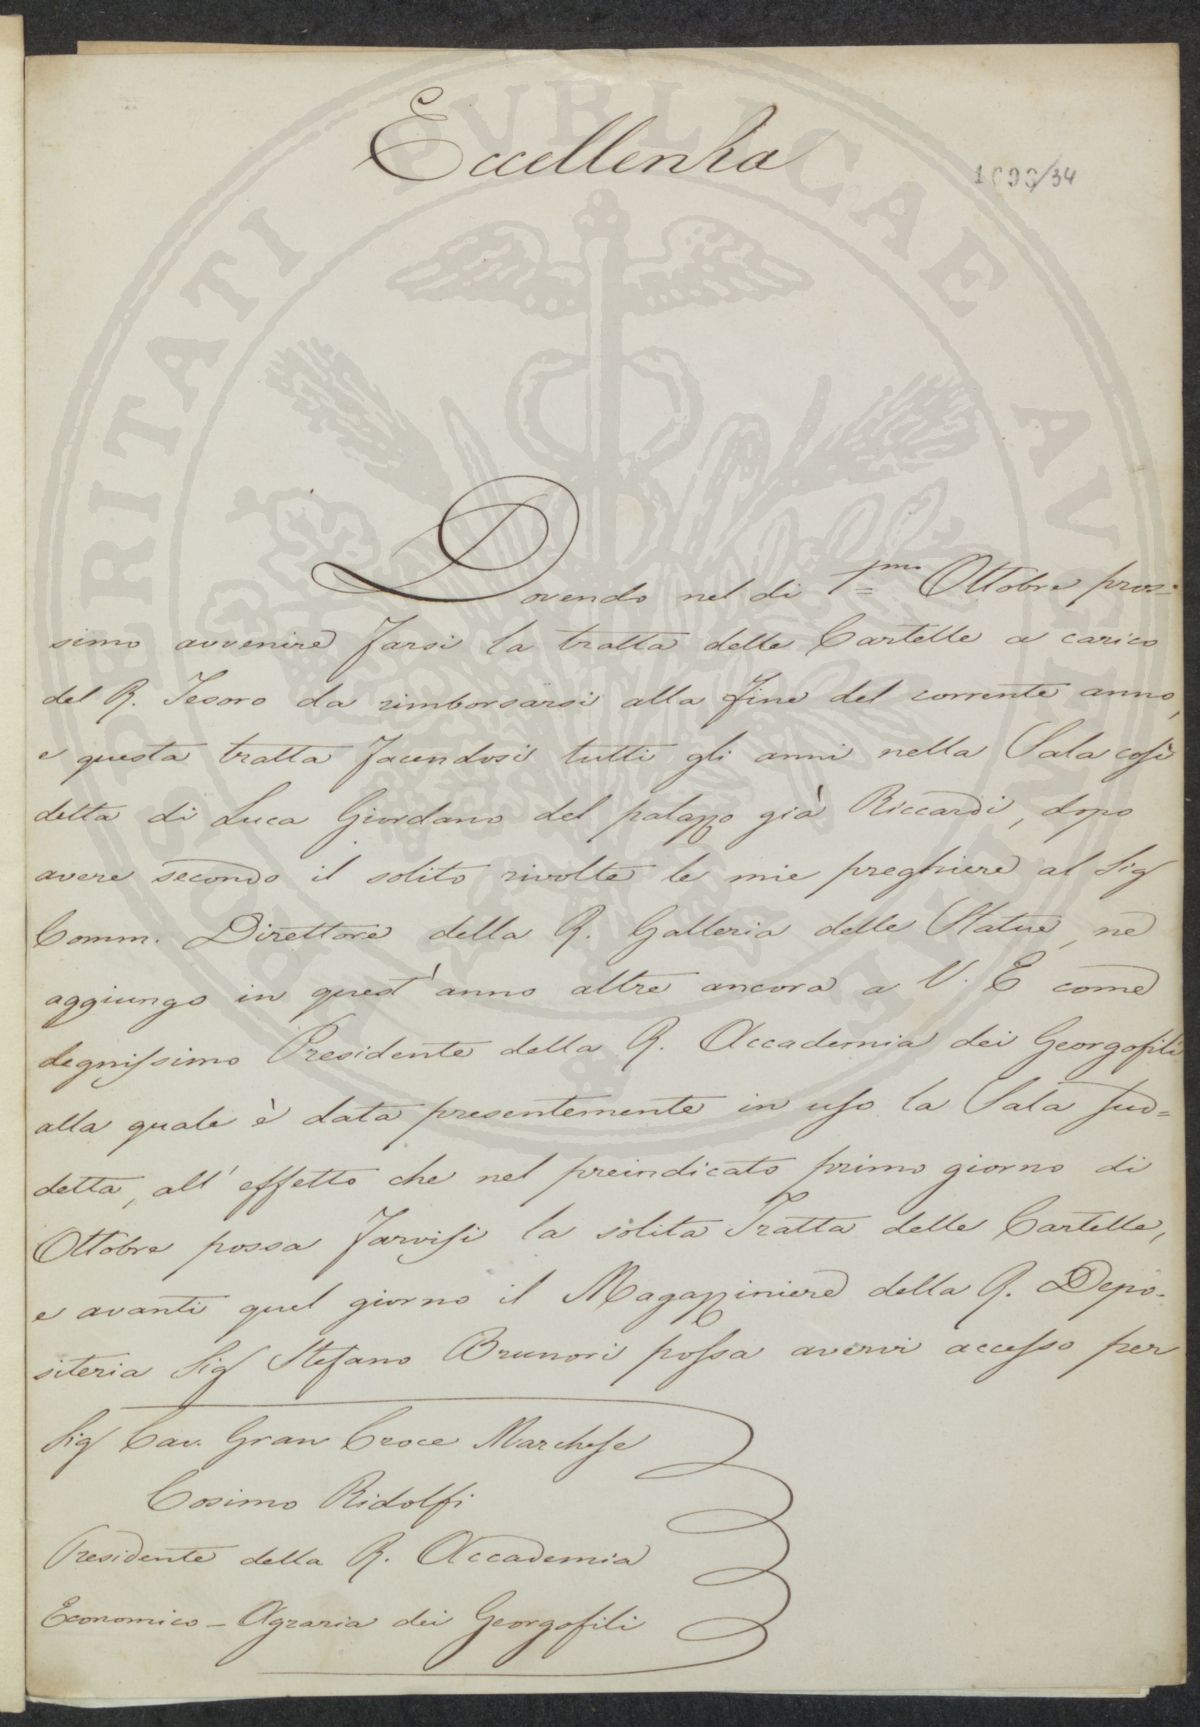 Eccellenza
1093/34
Dovendo nel di 1=mo Ottobre pros=
simo avvenire farsi la tratta delle Cartelle a carico
del R. Tesoro da rimborsarsi alla fine del corrente anno,
e questa tratta facendosi tutti gli anni nella Sala così
detta di Luca Giordano del palazzo già Riccardi, dopo
avere secondo il solito rivolte le mie preghiere al Sig
Comm. Direttore della R. Galleria delle Statue, ne
aggiungo in quest'anno altre ancora a V. E come
degnissimo Presidente della R. Accademia dei Georgofili
alla quale è data presentemente in uso la Sala sud=
detta, all'effetto che nel preindicato primo giorno di
Ottobre possa farvisi la solita Tratta delle Cartelle,
e avanti quel giorno il Magazziniere della R. Depo-
siteria Sig Stefano Brunori possa avervi accesso per
Sig Cav. Gran Croce Marchese
Cosimo Ridolfi
Presidente della R. Accademia
Economico-Agraria dei Georgofili
PROSPERITATI PVBLICAE AVGENDAE